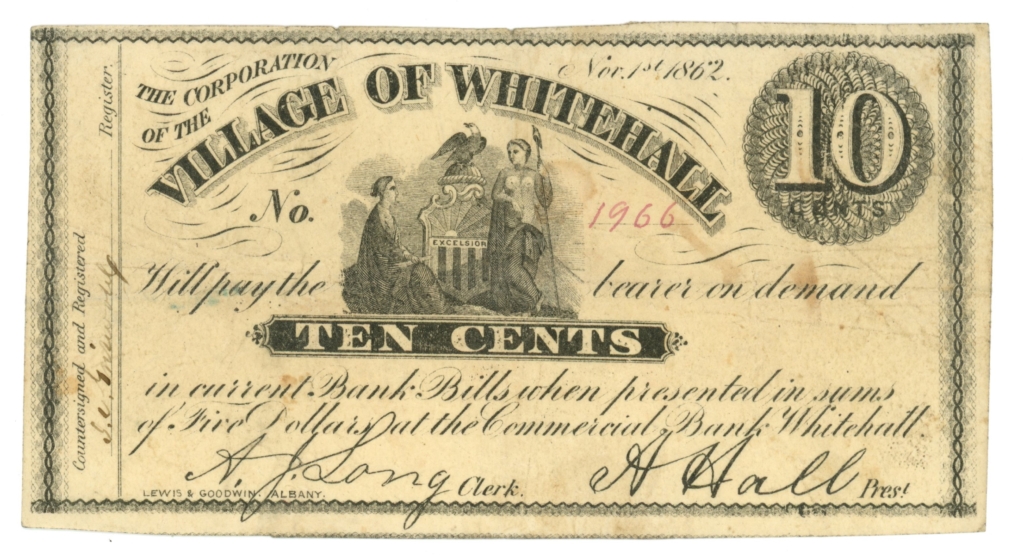 THE CORPORATION
OF THE
VILLAGE OF WHITEHALL
Nov. 1st 1862.
10
CENTS
No.
1966
EXCELSIOR
Will pay the bearer on demand
TEN CENTS
in current Bank Bills when presented in sums
of Five Dollars at the Commercial Bank Whitehall
A. J. Long Clerk.
A Hall Prest
LEWIS & GOODWIN, ALBANY.
Countersigned and Registered
Register.